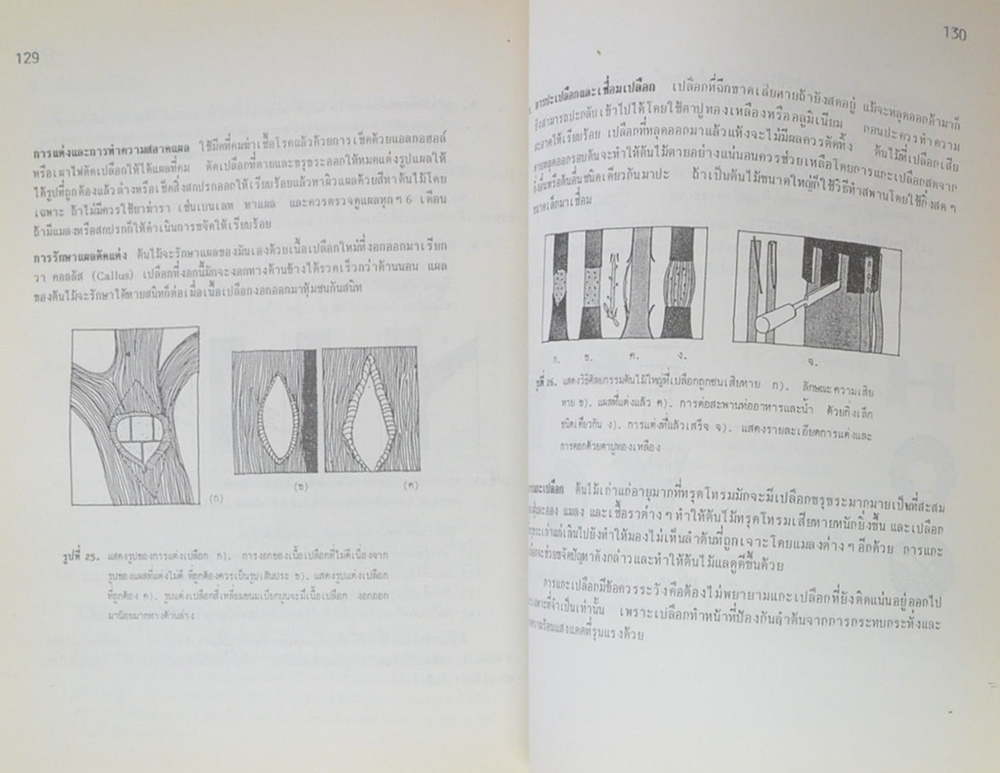 129
การแต่งและการทำความสะอาดแผล ใช้มีดที่คมฆ่าเชื้อโรคแล้วด้วยการเช็ดด้วยแอลกอฮอล์
หรือเผาไฟตัดเปลือกให้ได้แผลที่คม ตัดเปลือกที่ตายและขรุขระออกให้หมดแต่งรูปแผลให้
ได้รูปที่ถูกต้องแล้วล้างหรือเช็ดสิ่งสกปรกออกให้เรียบร้อยแล้วทาผิวแผลด้วยสีทาต้นไม้โดย
เฉพาะ ถ้าไม่มีควรใช้ยาฆ่ารา เช่นเบนเลท ทาแผล และควรตรวจดูแผลทุกๆ 6 เดือน
ถ้ามีแมลงหรือสกปรกก็ให้ดำเนินการขจัดให้เรียบร้อย
การรักษาแผลตัดแต่ง ต้นไม้จะรักษาแผลของมันเองด้วยเนื้อเปลือกใหม่ที่งอกออกมาเรียก
ว่า คอลลัส (Callus) เปลือกที่งอกนี้มักจะงอกทางด้านข้างได้รวดเร็วกว่าด้านนอน แผล
ของต้นไม้จะรักษาได้หายสนิทก็ต่อเมื่อเนื้อเปลือกงอกออกมาหุ้มชนกันสนิท
(ก)
(ข)
(ค)
รูปที่ 25. แสดงรูปของการแต่งเปลือก ก). การงอกของเนื้อเปลือกที่ไม่ดีเนื่องจาก
รูปของแผลที่แต่งไม่ดี ที่ถูกต้องควรเป็นรูปเส้นประ ข). แสดงรูปแต่งเปลือก
ที่ถูกต้อง ค). รูปแต่งเปลือกสี่เหลี่ยมขนมเปียกปูนจะมีเนื้อเปลือก งอกออก
มาน้อยมากทางด้านล่าง
130
การปะเปลือกและเชื่อมเปลือก เปลือกที่ฉีกขาดเสียหายถ้ายังสดอยู่ แม้จะหลุดออกถ้ามาก็
ยังสามารถปะกลับเข้าไปได้โดยใช้ตาปูทองเหลืองหรืออลูมิเนียม ก่อนปะควรทำความ
สะอาดให้เรียบร้อย เปลือกที่หลุดออกมาแล้วแห้งจะไม่มีผลควรตัดทิ้ง ต้นไม้ที่เปลือกเสีย
หายหลุดออกรอบต้นจะทำให้ต้นไม้ตายอย่างแน่นอนควรช่วยเหลือโดยการแกะเปลือกสดจาก
กิ่งอื่นหรือต้นอื่นชนิดเดียวกันมาปะ ถ้าเป็นต้นไม้ขนาดใหญ่ก็ใช้วิธีทำสพานโดยใช้กิ่งสด ๆ
ขนาดเล็กมาเชื่อม
ก. ข. ค. ง. จ.
รูปที่ 26. แสดงวิธีศัลยกรรมต้นไม้ใหญ่ที่เปลือกถูกชนเสียหาย ก). ลักษณะความเสีย
หาย ข). แผลที่แต่งแล้ว ค). การต่อสะพานท่ออาหารและน้ำ ด้วยกิ่งเล็ก
ชนิดเดียวกัน ง). การแต่งที่แล้วเสร็จ จ). แสดงรายละเอียดการแต่งและ
การตอกด้วยตาปูทองเหลือง
การแกะเปลือก ต้นไม้เก่าแก่อายุมากที่ทรุดโทรมมักจะมีเปลือกขรุขระมากมายเป็นที่สะสม
ฝุ่นละออง แมลง และเชื้อราต่างๆ ทำให้ต้นไม้ทรุดโทรมเสียหายหนักยิ่งขึ้น และเปลือก
ขรุขระเก่าแก่เกินไปยังทำให้มองไม่เห็นลำต้นที่ถูกเจาะโดยแมลงต่างๆ อีกด้วย การแกะ
เปลือกจะช่วยขจัดปัญหาดังกล่าวและทำให้ต้นไม้แลดูดีขึ้นด้วย
การแกะเปลือกมีข้อควรระวังคือต้องไม่พยายามแกะเปลือกที่ยังติดแน่นอยู่ออกไป
แกะเฉพาะที่จำเป็นเท่านั้น เพราะเปลือกทำหน้าที่ป้องกันลำต้นจากการกระทบกระทั่งและ
ความร้อนแสงแดดที่รุนแรงด้วย